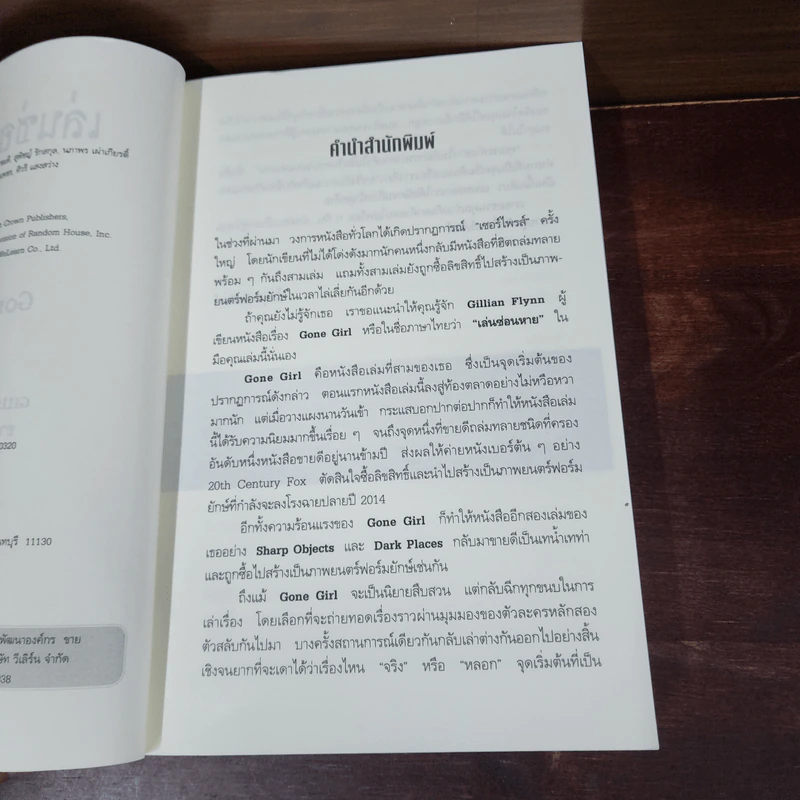 เล่นซ่อ
รักสกุล, นภาพร เผ่าเกียรติ์
ศิวรี แสงสว่าง
Crown Publishers,
ision of Random House, Inc.
eLearn Co., Ltd.
Gon
0320
ทบุรี 11130
พัฒนาองค์กร ขาย
ษัท วีเลิร์น จำกัด
838
คำนำสำนักพิมพ์
ในช่วงที่ผ่านมา วงการหนังสือทั่วโลกได้เกิดปรากฏการณ์ “เซอร์ไพรส์” ครั้ง
ใหญ่ โดยนักเขียนที่ไม่ได้โด่งดังมากนักคนหนึ่งกลับมีหนังสือที่ฮิตถล่มทลาย
พร้อม ๆ กันถึงสามเล่ม แถมทั้งสามเล่มยังถูกซื้อลิขสิทธิ์ไปสร้างเป็นภาพ-
ยนตร์ฟอร์มยักษ์ในเวลาไล่เลี่ยกันอีกด้วย
ถ้าคุณยังไม่รู้จักเธอ เราขอแนะนำให้คุณรู้จัก Gillian Flynn ผู้
เขียนหนังสือเรื่อง Gone Girl หรือในชื่อภาษาไทยว่า “เล่นซ่อนหาย” ใน
มือคุณเล่มนี้นั่นเอง
Gone Girl คือหนังสือเล่มที่สามของเธอ ซึ่งเป็นจุดเริ่มต้นของ
ปรากฏการณ์ดังกล่าว ตอนแรกหนังสือเล่มนี้ลงสู่ท้องตลาดอย่างไม่หวือหวา
มากนัก แต่เมื่อวางแผงนานวันเข้า กระแสบอกปากต่อปากก็ทำให้หนังสือเล่ม
นี้ได้รับความนิยมมากขึ้นเรื่อย ๆ จนถึงจุดหนึ่งที่ขายดีถล่มทลายชนิดที่ครอง
อันดับหนึ่งหนังสือขายดีอยู่นานข้ามปี ส่งผลให้ค่ายหนังเบอร์ต้น ๆ อย่าง
20th Century Fox ตัดสินใจซื้อลิขสิทธิ์และนำไปสร้างเป็นภาพยนตร์ฟอร์ม
ยักษ์ที่กำลังจะลงโรงฉายปลายปี 2014
อีกทั้งความร้อนแรงของ Gone Girl ก็ทำให้หนังสืออีกสองเล่มของ
เธออย่าง Sharp Objects และ Dark Places กลับมาขายดีเป็นเทน้ำเทท่า
และถูกซื้อไปสร้างเป็นภาพยนตร์ฟอร์มยักษ์เช่นกัน
ถึงแม้ Gone Girl จะเป็นนิยายสืบสวน แต่กลับฉีกทุกขนบในการ
เล่าเรื่อง โดยเลือกที่จะถ่ายทอดเรื่องราวผ่านมุมมองของตัวละครหลักสอง
ตัวสลับกันไปมา บางครั้งสถานการณ์เดียวกันกลับเล่าต่างกันออกไปอย่างสิ้น
เชิงจนยากที่จะเดาได้ว่าเรื่องไหน “จริง” หรือ “หลอก” จุดเริ่มต้นที่เป็น